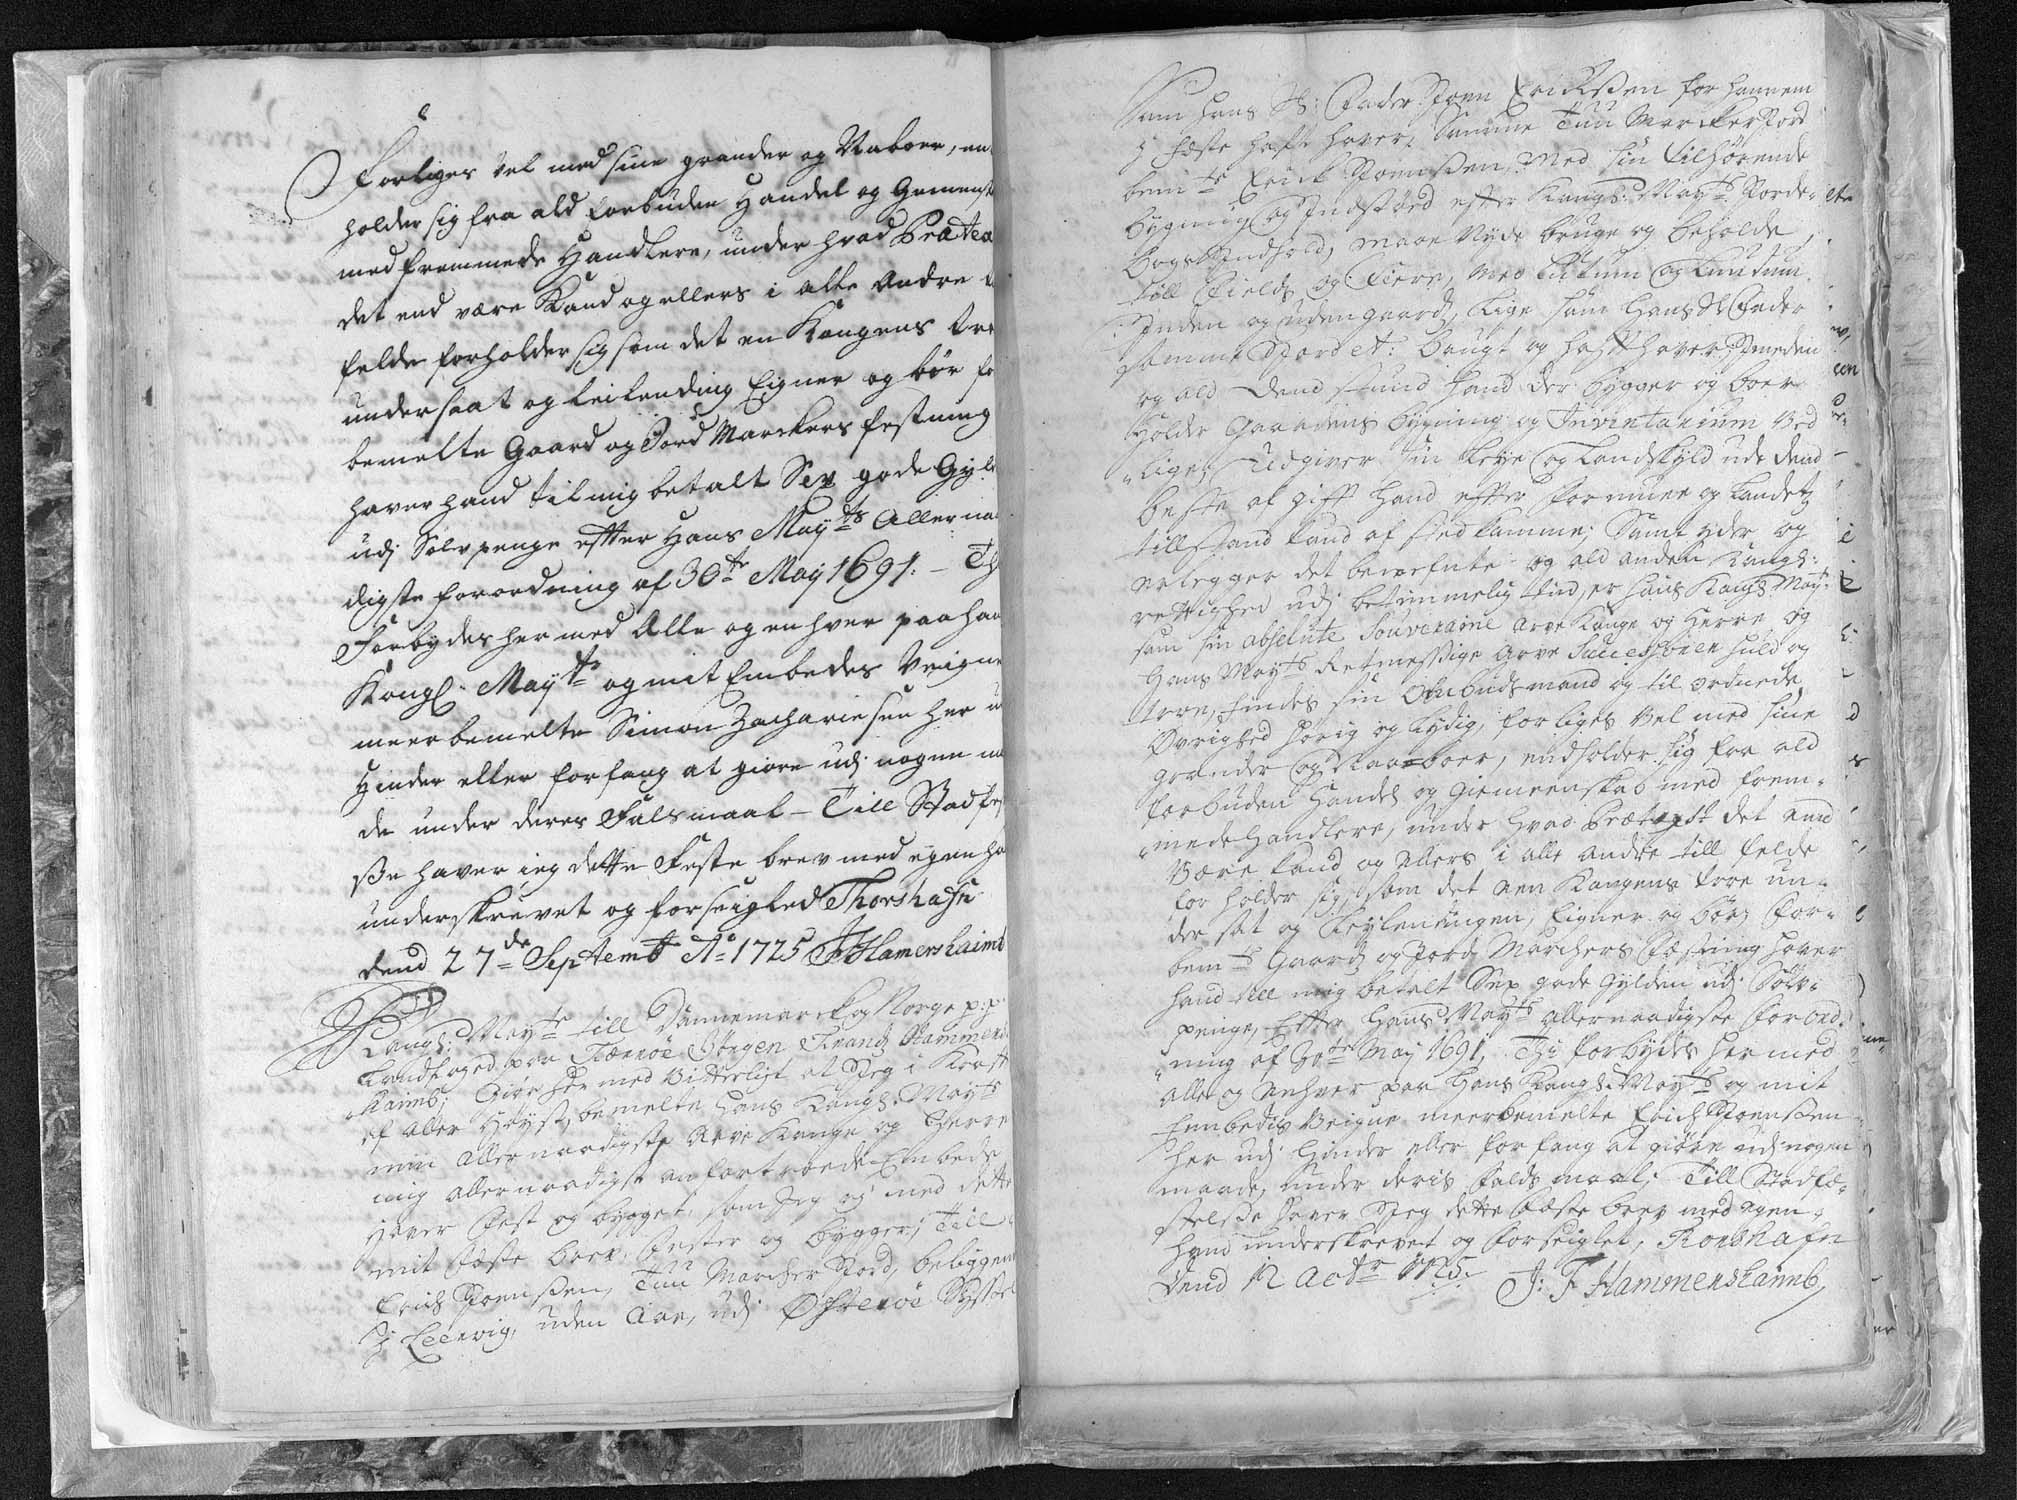 Forliges vel med sine grander og Naboer, en
holder sig fra ald forbuden Handel og Gemensk
med fremmede Handlere, under hvad Prætex
det end være Kand og ellers i alle Andre
felde forholder sig som det en Kongens tro
undersaat og leilending Eigner og bør fo
bemelte Gaard og Jord Marckers festning
haver hand til mig betalt Sex gode Gyld
udj Sølvpenge efter Hans Mayts Allerna
digste forordning af 30te May 1691. – Th
Forbydes her med Alle og en hver paa Han
Kongl: Maytz og mit Embedes Veigne
meerbemelte Simon Zachariesen her u
Hinder eller forfang at giøre udj nogen ma
de under deres Falsmaal – Till Stadfes
ße haver ieg dette Feste brev med egen ha
underskrevet og forseiglet Thorshafn
dend 27de Septembr Ao 1725 J F Hamershaimb
Kongl: Mayts till Dannemarck og Norge p:p:
Landfoged paa Færröe Jörgen Frandz Hammers
haimb, Giør her med Vitterligt at Jeg i Kraft
af aller Høyst bemelte Hans Kongl: Mayts
min allernaadigste Arve Konge og Herre
mig allernaadigst anfortroede Embede
Haver Fest og bygget, som Jeg og med dette
mit Fæste brev, Fester og bygger, Till
Erich Joensen, Tuu Marcher Jord, beliggen
J Leervig, uden Aae, udj Østerøe Syssel
Som hans Sl: Fader Joen Erichßen for hannem
J Feste hafft haver, Samme Tuu Marcker Jord
bemte Erich Joensßen, Med sin tilhørende
bygning og Indstöd efter Kongl: Mayts Jorde-
bogs Indhold, maae Nyde bruge og beholde,
till Field og Fiere, med Lutum og Lundum
Inden og uden gaards, Lige som hans Sl Fader
samme Jord et: brugt og hafft haver, Jmedens
og ald dend stund hand der bygger og boer
Holde Gaardens bygning og Inventarium Ved
lige, Udgiver sin Leye og Landskyld udi dend
beste af gift hand efter formue og Landetz
tillstand kand af sted komme; Samt yder og
erlegger det benefente og ald anden Kongl:
rettighed udj betimmelig tiid, er hans Kongl: Mayt:
som sin absolute Souveraine Arve Konge og Herre og
Hans Mayts Retmeßige Arve Successorer huld og
troe, findes sin Ombudsmand og til ordnede
Øvrighed hørig og Lydig, forliges Vel med sine
grander og Naaboer, endholder sig fra ald
forbuden Handel og Giemeenskab med frem-
mede Handlere, under hvad Prætext det end
Være kand og ellers i alle Andre till felde
for holder sig, som det een Kongens troe un-
der sat og Leylendingen, Eigner og bör, For
bemte Gaard og Jord Marchers Fæstning haver
hand till mig betalt Sex gode Gylden udj Sölv-
penge, Efter Hans Mayts allernaadigste Forord-
ning af 30te May 1691, Thi forbydes her med
alle og Enhver paa Hans Kongl: Mayts og mit
Embedis Veigne meerbemelte Erich Joensßen
her udj Hinder eller for fang at giöre udj nogen
maade, under deris Falds maal; Till Stadfæ-
stelsße haver Jeg dette fæste brev med egen
hand underskrevet og Forseiglet, Torshafn
Dend 12 Octbr 1725. J: F Hammershaimb